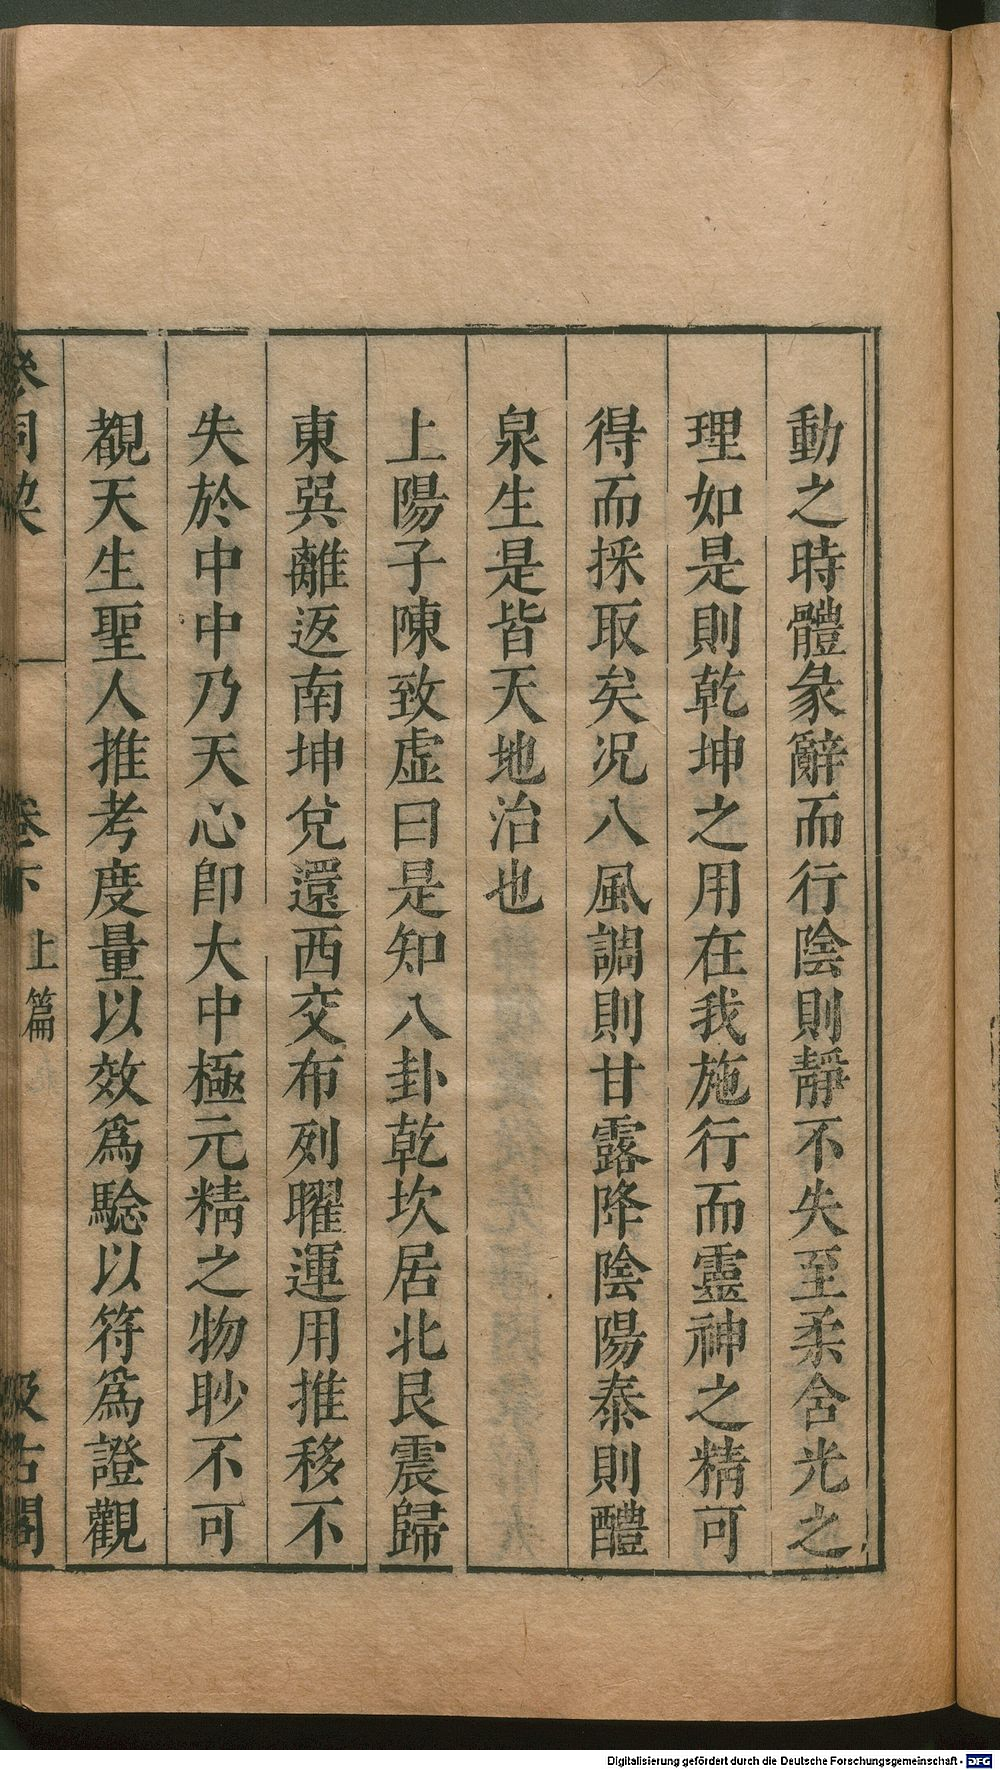 動之時體彖辭而行陰則靜不失至柔含光之
理如是則乾坤之用在我施行而靈神之精可
得而採取矣况八風調則甘露降陰陽泰則醴
泉生是皆天地治也
上陽子陳致虛曰是知八卦乾坎居北艮震歸
東巽離返南坤兌還西交布列曜運用推移不
失於中中乃天心卽大中極元精之物眇不可
覩天生聖人推考度量以效爲驗以符爲證觀
參同契 卷下 上篇 汲古閣
Digitalisierung gefördert durch die Deutsche Forschungsgemeinschaft - DFG